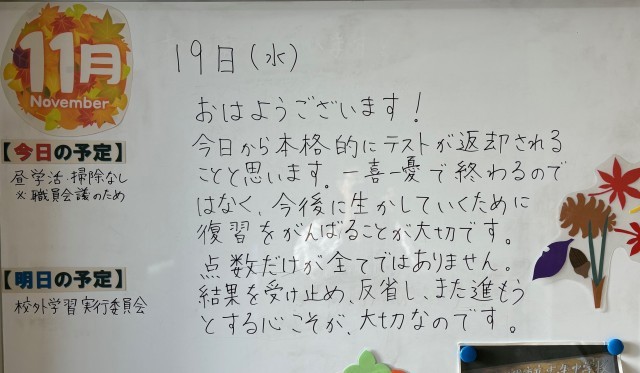 11月
November
19日(水)
おはようございます!
今日から本格的にテストが返却される
ことと思います。一喜一憂で終わるので
はなく、今後に生かしていくために
復習をがんばることが大切です。
点数だけが全てではありません。
結果を受け止め、反省し、また進もう
とする心こそが、大切なのです。
【今日の予定】
昼学活・掃除なし
※職員会議のため
【明日の予定】
校外学習実行委員会